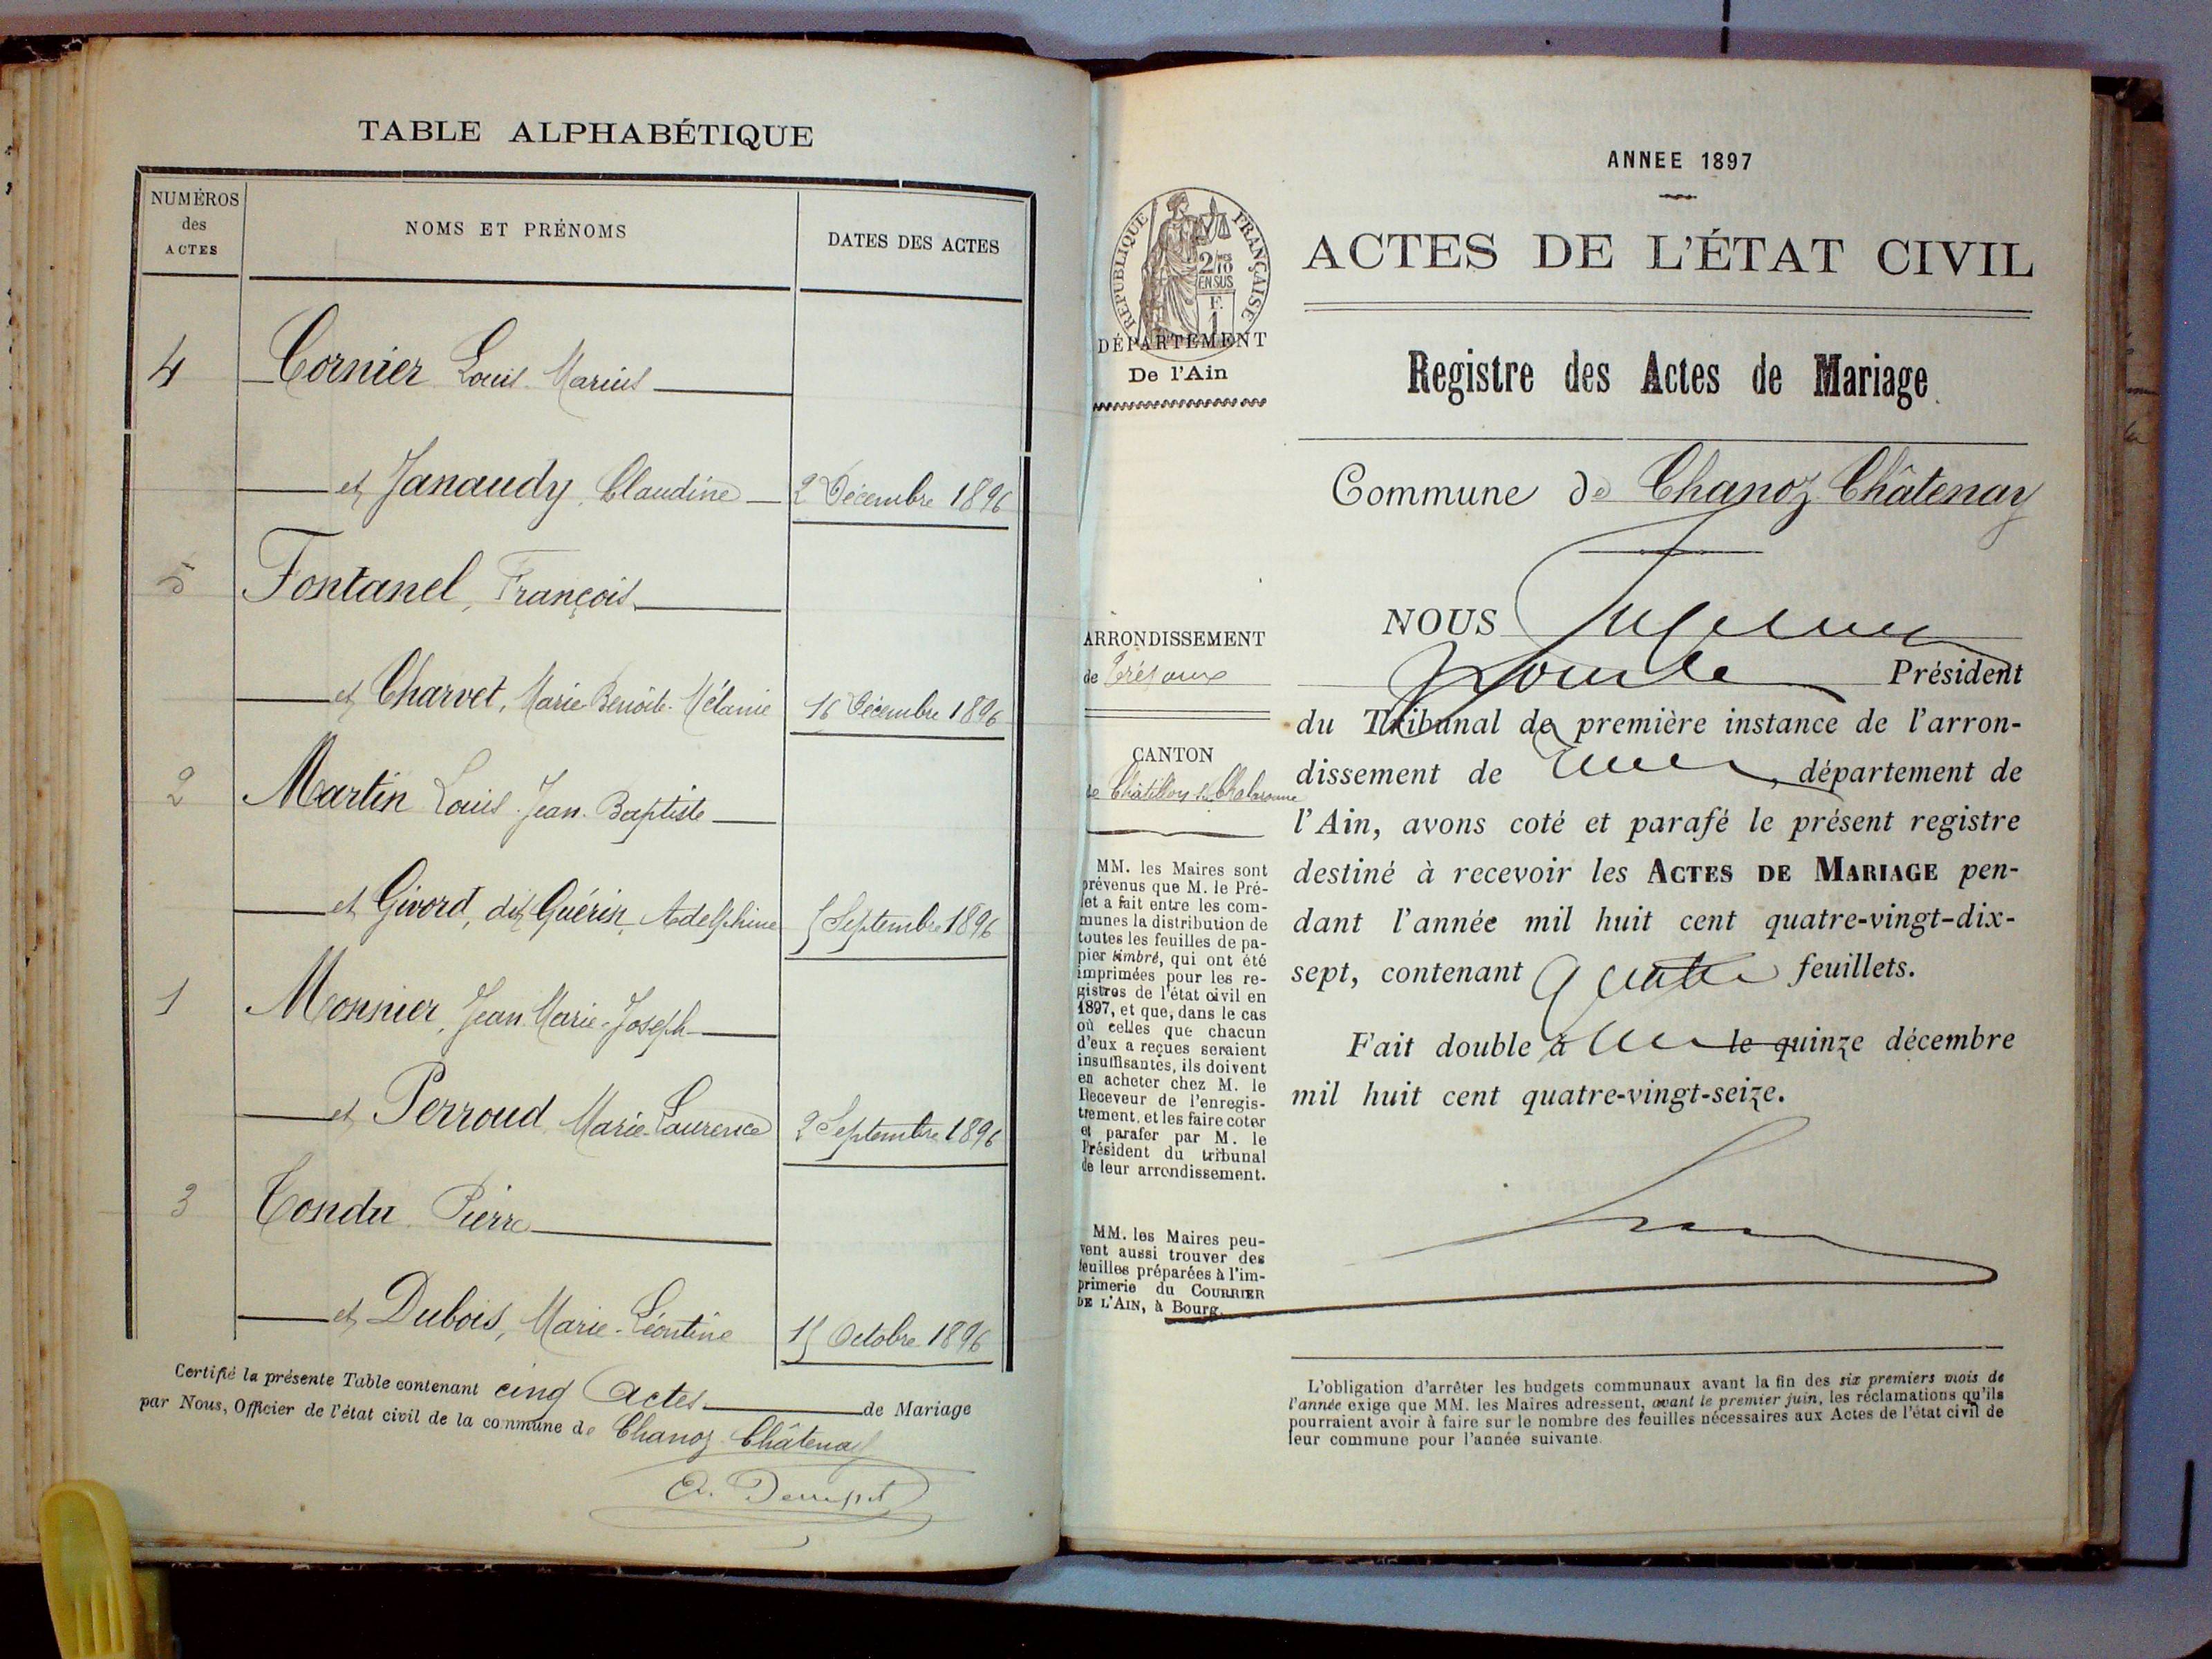 TABLE ALPHABÉTIQUE
NUMÉROS
des
ACTES
NOMS ET PRÉNOMS
DATES DES ACTES
4 Cornier Louis Marius
et Janaudy, Claudine 2 Décembre 1896
5 Fontanel, François
et Charvet, Marie Benoite Mélanie 16 Décembre 1896
2 Martin Louis Jean Baptiste
et Givord, dit Guérin Adelphine 5 Septembre 1896
1 Monnier, Jean Marie-Joseph
et Perroud Marie-Laurence 2 Septembre 1896
3 Tondu Pierre
et Dubois, Marie-Léontine 15 Octobre 1896
Certifié la présente Table contenant cinq Actes de Mariage
par Nous, Officier de l'état civil de la commune de Chanoz Châtenay
ANNEE 1897
RÉPUBLIQUE FRANÇAISE
2/10
EN SUS
F.
1
DÉPARTEMENT
De l'Ain
ACTES DE L'ÉTAT CIVIL
Registre des Actes de Mariage
Commune de Chanoz Châtenay
ARRONDISSEMENT
de Trévoux
CANTON
de Châtillon sur Chalaronne
MM. les Maires sont
prévenus que M. le Pré-
fet a fait entre les com-
munes la distribution de
toutes les feuilles de pa-
pier timbré, qui ont été
imprimées pour les re-
gistres de l'état civil en
1897, et que, dans le cas
où celles que chacun
d'eux a reçues seraient
insuffisantes, ils doivent
en acheter chez M. le
Receveur de l'enregis-
trement, et les faire coter
et parafer par M. le
Président du tribunal
de leur arrondissement.
MM. les Maires peu-
vent aussi trouver des
feuilles préparées à l'im-
primerie du COURRIER
DE L'AIN, à Bourg.
NOUS
Président
du Tribunal de première instance de l'arron-
dissement de , département de
l'Ain, avons coté et parafé le présent registre
destiné à recevoir les ACTES DE MARIAGE pen-
dant l'année mil huit cent quatre-vingt-dix-
sept, contenant quatre feuillets.
Fait double à le quinze décembre
mil huit cent quatre-vingt-seize.
L'obligation d'arrêter les budgets communaux avant la fin des six premiers mois de
l'année exige que MM. les Maires adressent, avant le premier juin, les réclamations qu'ils
pourraient avoir à faire sur le nombre des feuilles nécessaires aux Actes de l'état civil de
leur commune pour l'année suivante.